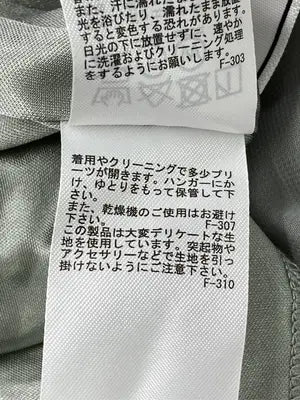 また、汗に濡れたり
光を浴びたり、濡れたまま放置
すると変色する恐れがあります。
日光の下に放置せずに、速やか
に洗濯およびクリーニング処理
をするようお願いします。
F-303
着用やクリーニングで多少プリ
ーツが開きます。ハンガーにか
け、ゆとりをもって保管して下
さい。
また、乾燥機のご使用はお避け
下さい。
F-307
この製品は大変デリケートな生
地を使用しています。突起物や
アクセサリーなどで生地を引っ
掛けないようにご注意下さい。
F-310